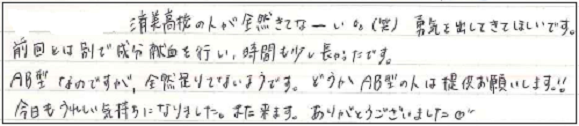 渥美高校の人が全然きてなーい。。(笑) 勇気を出してきてほしいです。
前回とは別で成分献血を行い、時間も少し長かったです。
AB型なのですが、全然足りてないようです。どうかAB型の人は提供お願いします!!
今日もうれしい気持ちになりました。また来ます。ありがとうございました